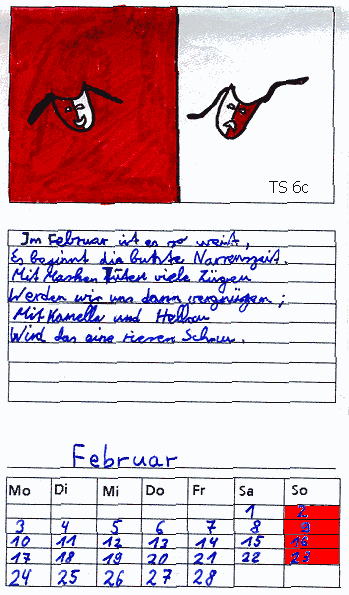 TS 6c
Im Februar ist es so weit,
Es beginnt die bunte Narrenzeit.
Mit Masken Tüten viele Zügen
Werden wir uns dann vergnügen;
Mit Kamella und Hellau
Wird das eine riesen Schau.
Februar
Mo Di Mi Do Fr Sa So
1 2
3 4 5 6 7 8 9
10 11 12 13 14 15 16
17 18 19 20 21 22 23
24 25 26 27 28